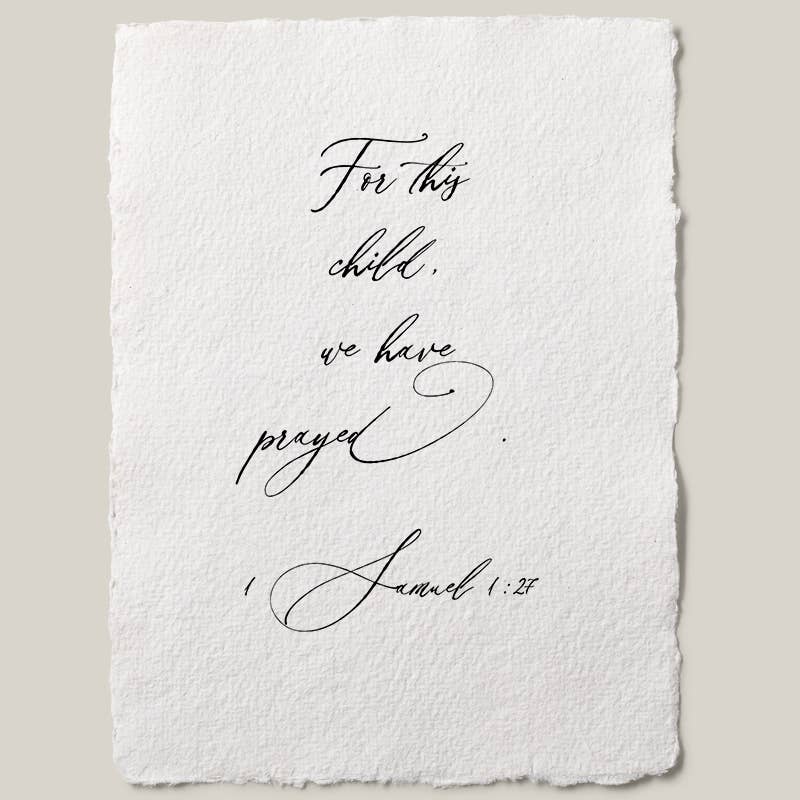 For this
child,
we have
prayed.
1 Samuel 1:27